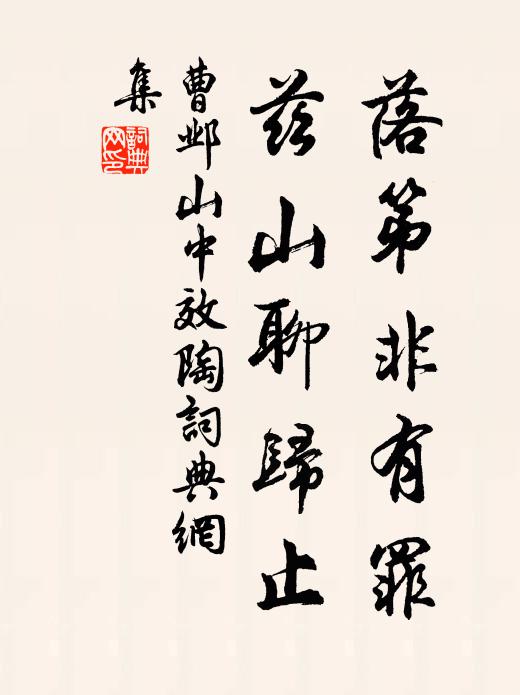 落第非有罪
茲山聊歸止
曹鄴山中效陶詞典網
集
詞典網印